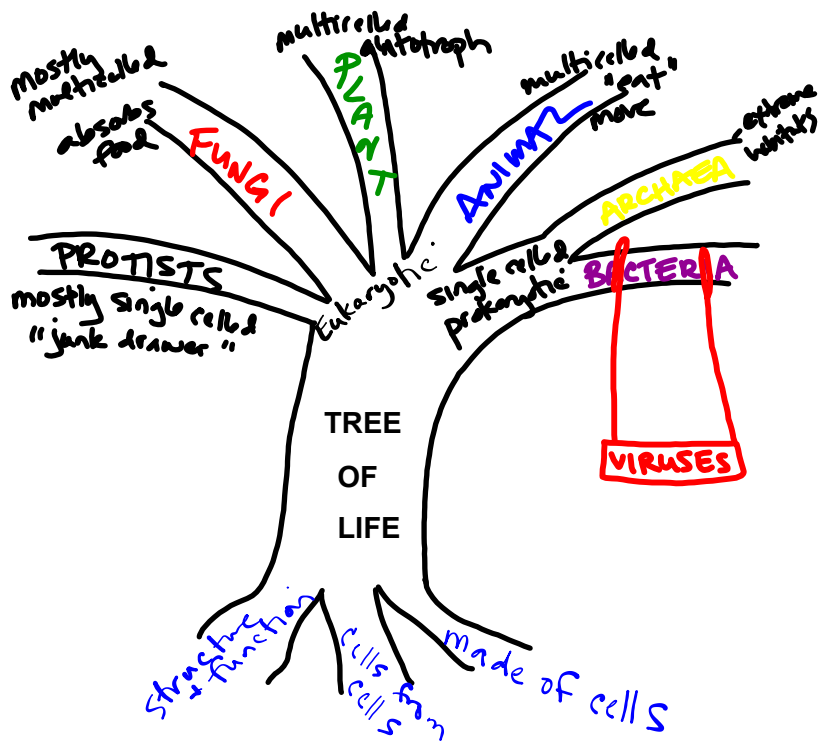 mostly
multicelled
absorbs
food
FUNGI
multicelled
autotroph
PLANT
multicelled
"eat"
move
ANIMAL
extreme
habitats
ARCHAEA
PROTISTS
mostly single celled
"junk drawer"
Eukaryotic
single celled
prokaryotic
BACTERIA
VIRUSES
TREE
OF
LIFE
structure
+ function
cells from
cells
made of cells